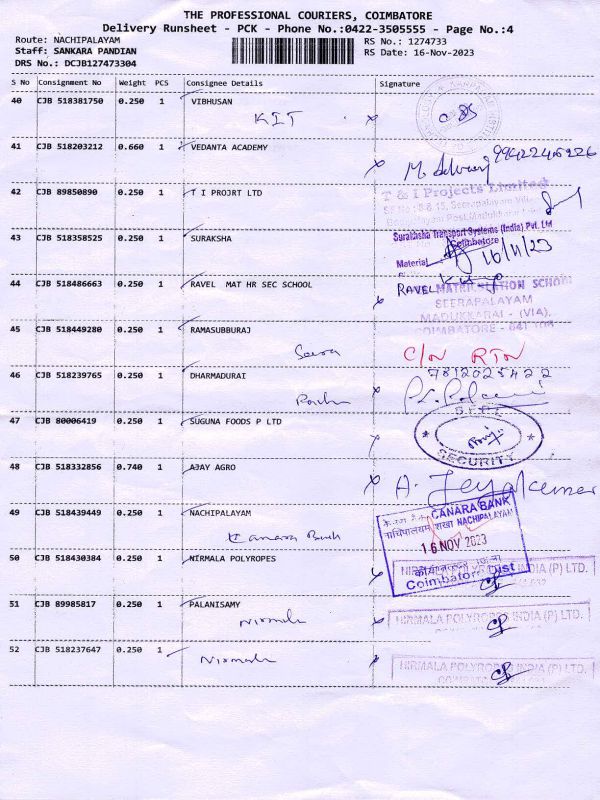 THE PROFESSIONAL COURIERS, COIMBATORE
Delivery Runsheet - PCK - Phone No.:0422-3505555 - Page No.:4
Route: NACHIPALAYAM
Staff: SANKARA PANDIAN
DRS No.: DCJB127473304
RS No.: 1274733
RS Date: 16-Nov-2023
S No Consignment No Weight PCS Consignee Details Signature
40 CJB 518381750 0.250 1 VIBHUSAN
KIT
41 CJB 518203212 0.660 1 VEDANTA ACADEMY
9942245226
42 CJB 89850890 0.250 1 T I PROJRT LTD
T & I Projects Limited
43 CJB 518358525 0.250 1 SURAKSHA
Suraksha Transport Systems (India) Pvt. Ltd
Coimbatore
Material
16/11/23
44 CJB 518486663 0.250 1 RAVEL MAT HR SEC SCHOOL
RAVEL MATRICULATION SCHOOL
SEERAPALAYAM
MADUKKARAI - (VIA).
COIMBATORE - 641 105
45 CJB 518449280 0.250 1 RAMASUBBURAJ
C/N RTN
46 CJB 518239765 0.250 1 DHARMADURAI
7812025422
47 CJB 80006419 0.250 1 SUGUNA FOODS P LTD
SECURITY
48 CJB 518332856 0.740 1 AJAY AGRO
A. Jeyakumar
49 CJB 518439449 0.250 1 NACHIPALAYAM
Canara Bank
CANARA BANK
NACHIPALAYAM
16 NOV 2023
Coimbatore Dist
50 CJB 518430384 0.250 1 NIRMALA POLYROPES
NIRMALA POLYROPES INDIA (P) LTD.
51 CJB 89985817 0.250 1 PALANISAMY
Nirmala
NIRMALA POLYROPES INDIA (P) LTD.
52 CJB 518237647 0.250 1
Nirmala
NIRMALA POLYROPES INDIA (P) LTD.